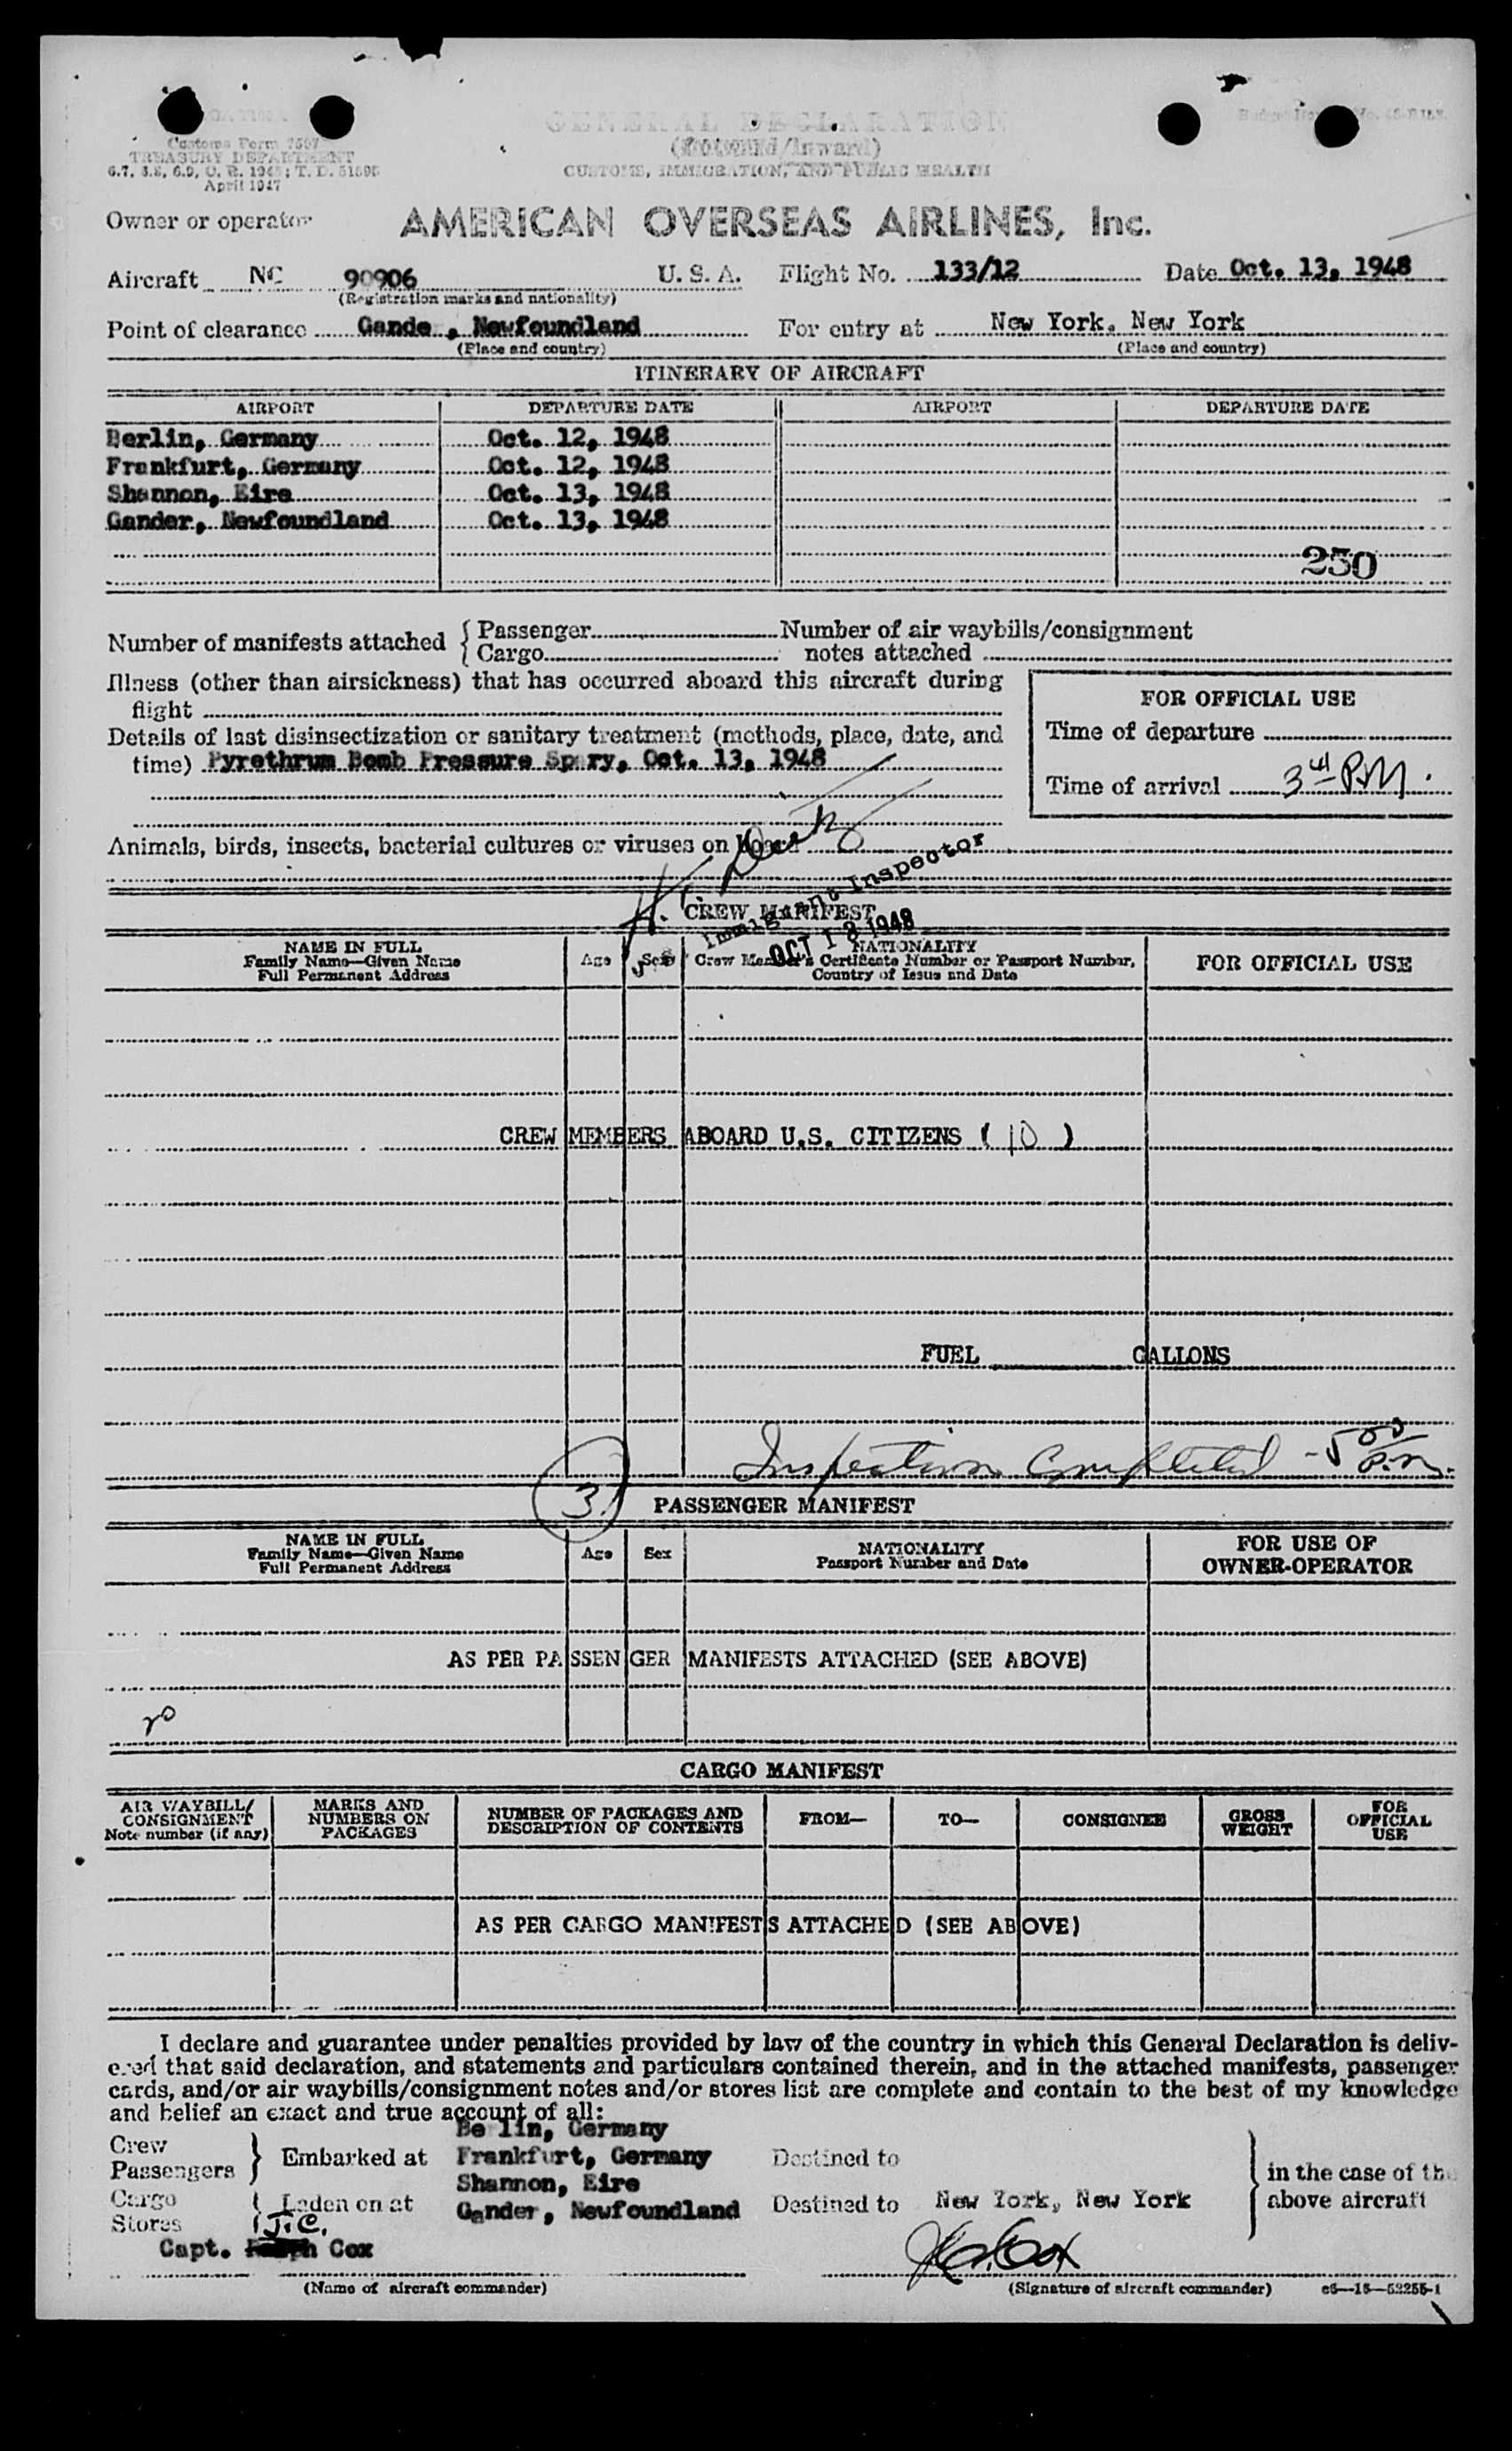 Customs Form 7507
TREASURY DEPARTMENT
April 1947
GENERAL DECLARATION
(Outward/Inward)
CUSTOMS, IMMIGRATION, AND PUBLIC HEALTH
Owner or operator AMERICAN OVERSEAS AIRLINES, Inc.
Aircraft NC 90906 U. S. A. Flight No. 133/12 Date Oct. 13, 1948
(Registration marks and nationality)
Point of clearance Gande , Newfoundland For entry at New York, New York
(Place and country) (Place and country)
ITINERARY OF AIRCRAFT
AIRPORT DEPARTURE DATE AIRPORT DEPARTURE DATE
Berlin, Germany Oct. 12, 1948
Frankfurt, Germany Oct. 12, 1948
Shannon, Eire Oct. 13, 1948
Gander, Newfoundland Oct. 13, 1948
250
Number of manifests attached { Passenger Number of air waybills/consignment
Cargo notes attached
Illness (other than airsickness) that has occurred aboard this aircraft during
flight
FOR OFFICIAL USE
Time of departure
Details of last disinsectization or sanitary treatment (methods, place, date, and
time) Pyrethrum Bomb Pressure Sp ry, Oct. 13, 1948
Time of arrival 3 41 PM.
Animals, birds, insects, bacterial cultures or viruses on
Immigrant Inspector
CREW MANIFEST
OCT 13 1948
NAME IN FULL
Family Name—Given Name
Full Permanent Address
Age Sex
NATIONALITY
Crew Member's Certificate Number or Passport Number,
Country of Issue and Date
FOR OFFICIAL USE
CREW MEMBERS ABOARD U.S. CITIZENS ( 10 )
FUEL GALLONS
Inspection Completed - 5 00 P.m.
3 PASSENGER MANIFEST
NAME IN FULL
Family Name—Given Name
Full Permanent Address
Age Sex
NATIONALITY
Passport Number and Date
FOR USE OF
OWNER-OPERATOR
AS PER PASSENGER MANIFESTS ATTACHED (SEE ABOVE)
CARGO MANIFEST
AIR WAYBILL/
CONSIGNMENT
Note number (if any)
MARKS AND
NUMBERS ON
PACKAGES
NUMBER OF PACKAGES AND
DESCRIPTION OF CONTENTS
FROM— TO— CONSIGNEE
GROSS
WEIGHT
FOR
OFFICIAL
USE
AS PER CARGO MANIFESTS ATTACHED (SEE ABOVE)
I declare and guarantee under penalties provided by law of the country in which this General Declaration is deliv-
ered that said declaration, and statements and particulars contained therein, and in the attached manifests, passenger
cards, and/or air waybills/consignment notes and/or stores list are complete and contain to the best of my knowledge
and belief an exact and true account of all:
Be lin, Germany
Crew
Passengers } Embarked at Frankfurt, Germany Destined to
Shannon, Eire
in the case of the
Cargo
Stores { Laden on at Gander, Newfoundland Destined to New York, New York above aircraft
J.C.
Capt. Cox
(Name of aircraft commander) (Signature of aircraft commander) c6—16—52255-1